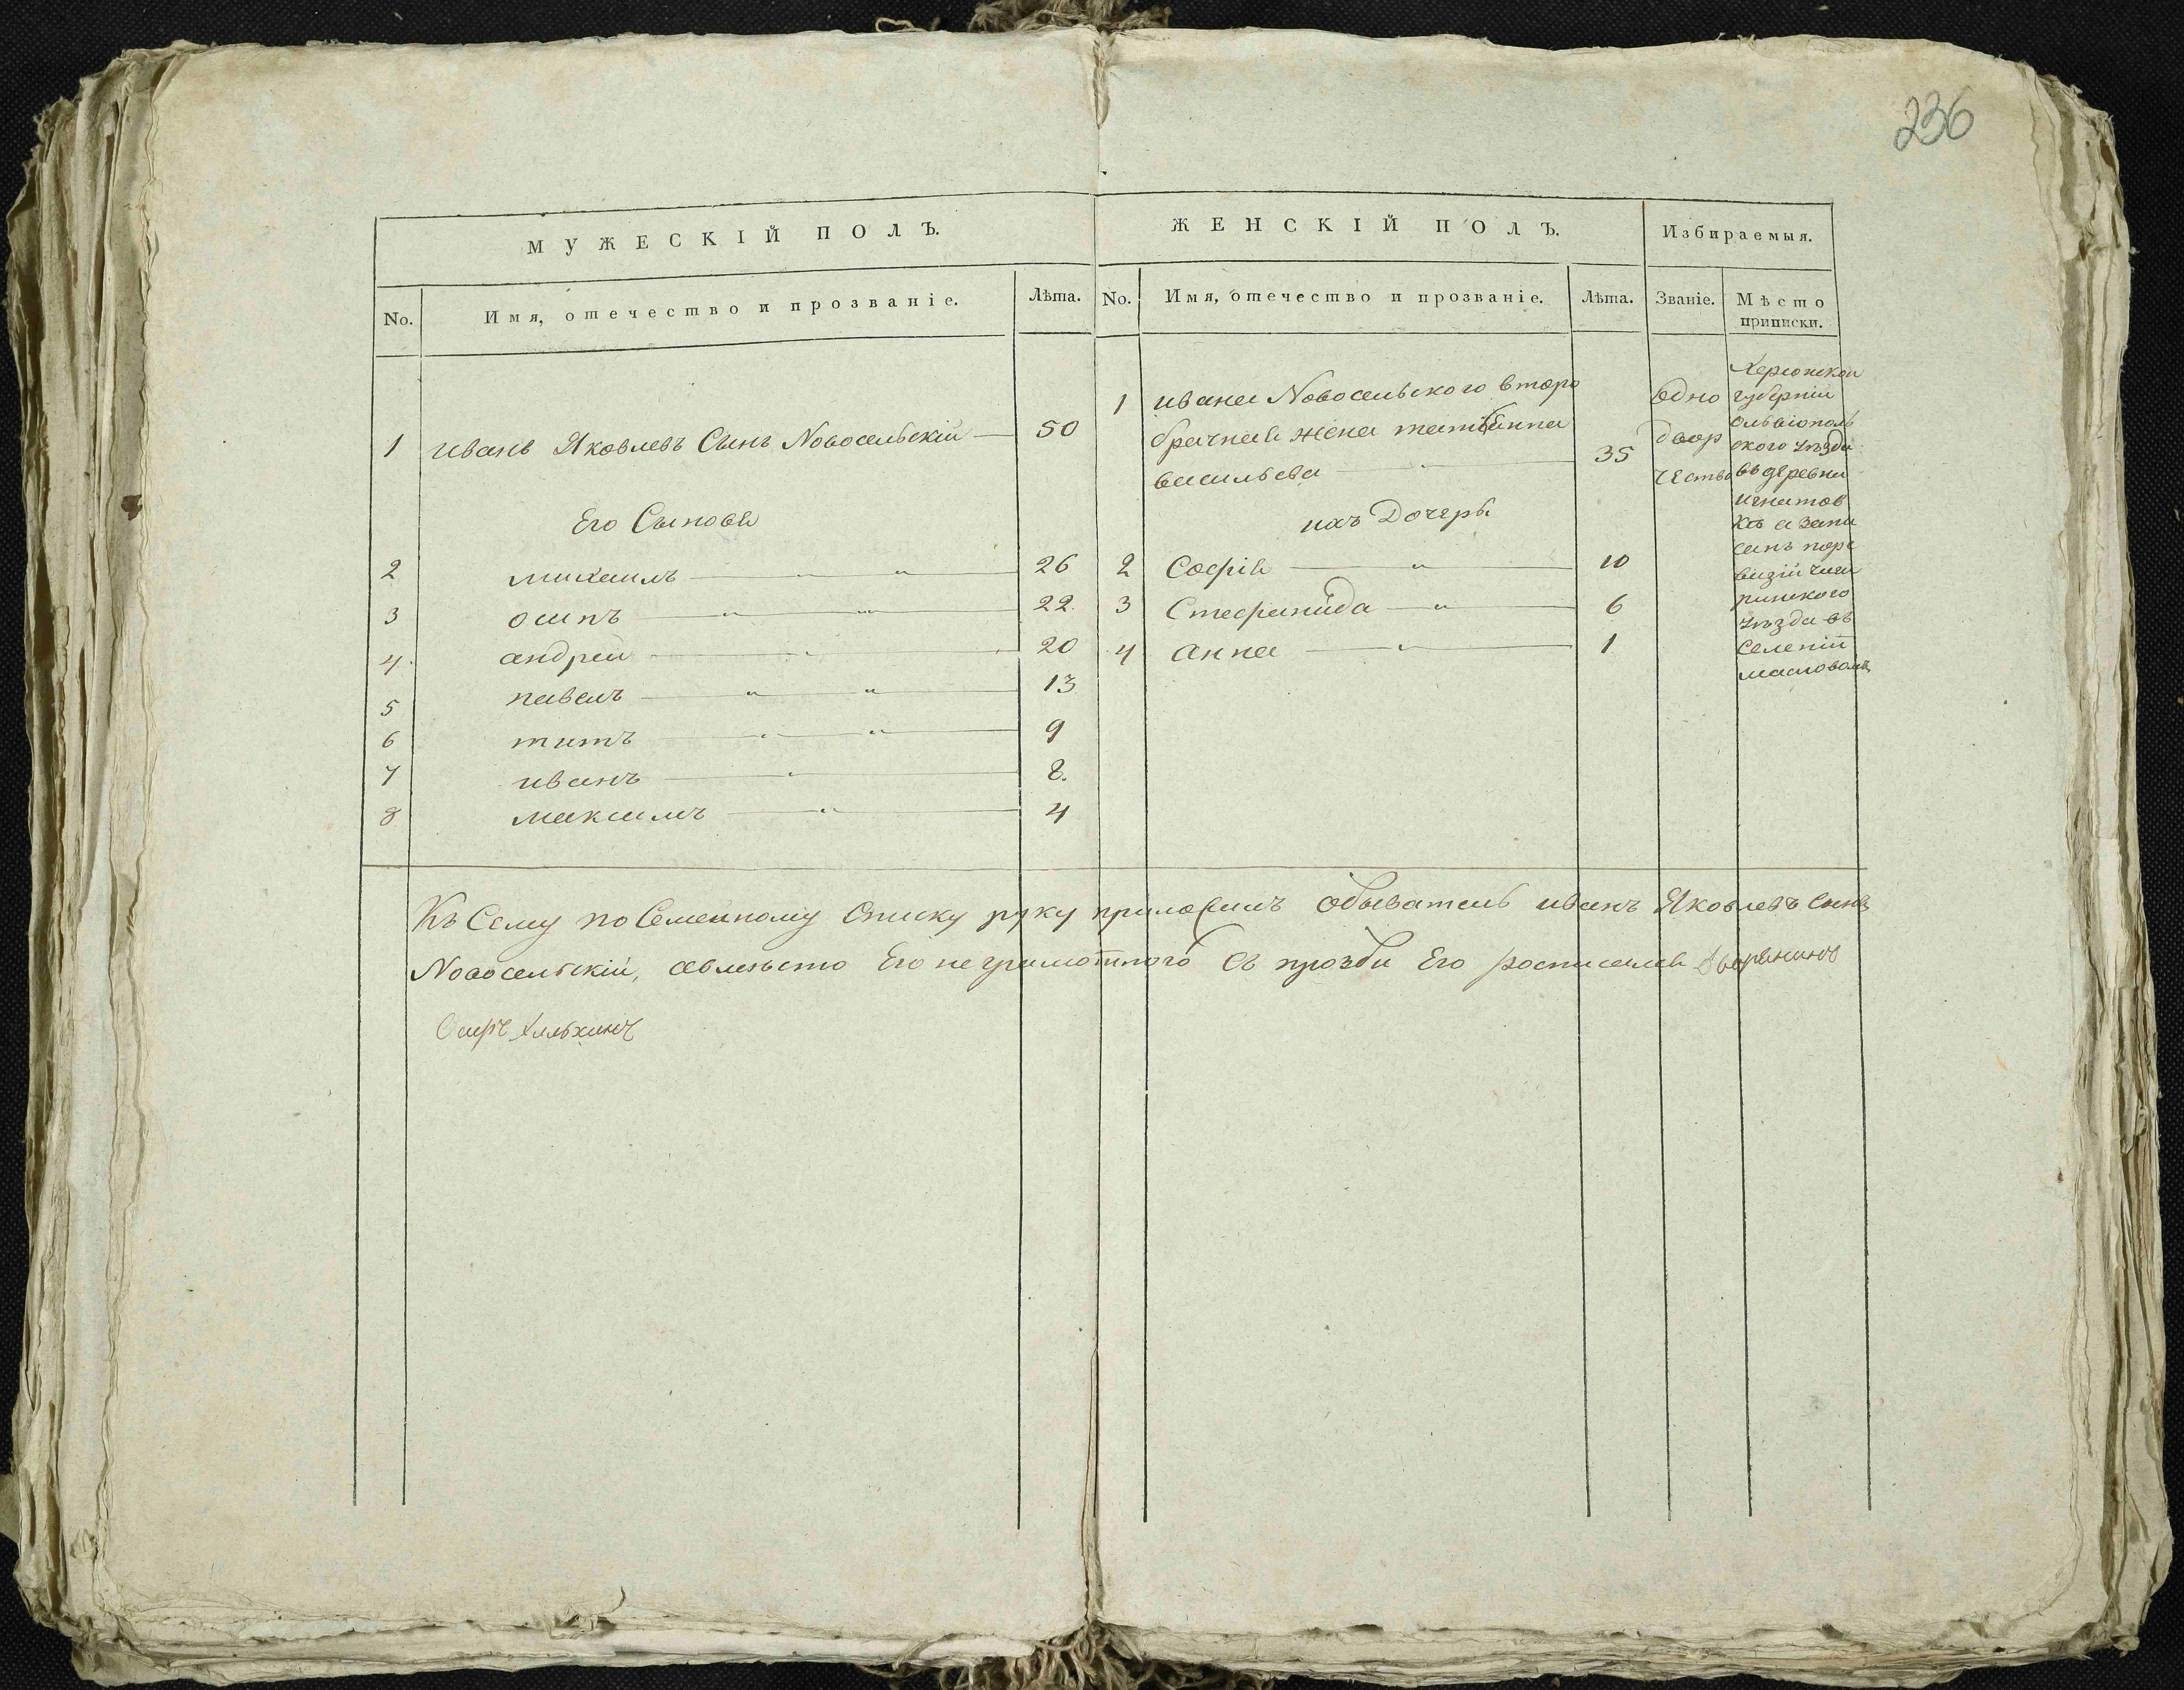 236
МУЖЕСКІЙ ПОЛЪ.
ЖЕНСКІЙ ПОЛЪ.
Избираемыя.
No.
Имя, отечество и прозваніе.
Лѣта.
No.
Имя, отечество и прозваніе.
Лѣта.
Званіе.
Мѣсто
приписки.
1 иванъ Яковлевъ Сынъ Новосельскій 50
Его Сыновя
2 михаилъ 26
3 осипъ 22
4 андрей 20
5 павелъ 13
6 титъ 9
7 иванъ 8.
8 максимъ 4
1 ивана Новосельского второ
брачная жена
васильева 35
ихъ Дочеры
2 Софія 10
3 Стефанида 6
4 Анна 1
одно
двор
чество
Херсонской
губерніи
Ольвіополь
ского уѣзда
въ деревни
игнатов
ка а запи
санъ поре
визіи чиги
ринского
уѣзда въ
Селеніи
масловомъ
Къ Сему по Семейному Списку руку приложилъ обыватель иванъ Яковлевъ сынъ
Новосельскій, Его не грамотного Съ прозби Его росписался дворянинъ